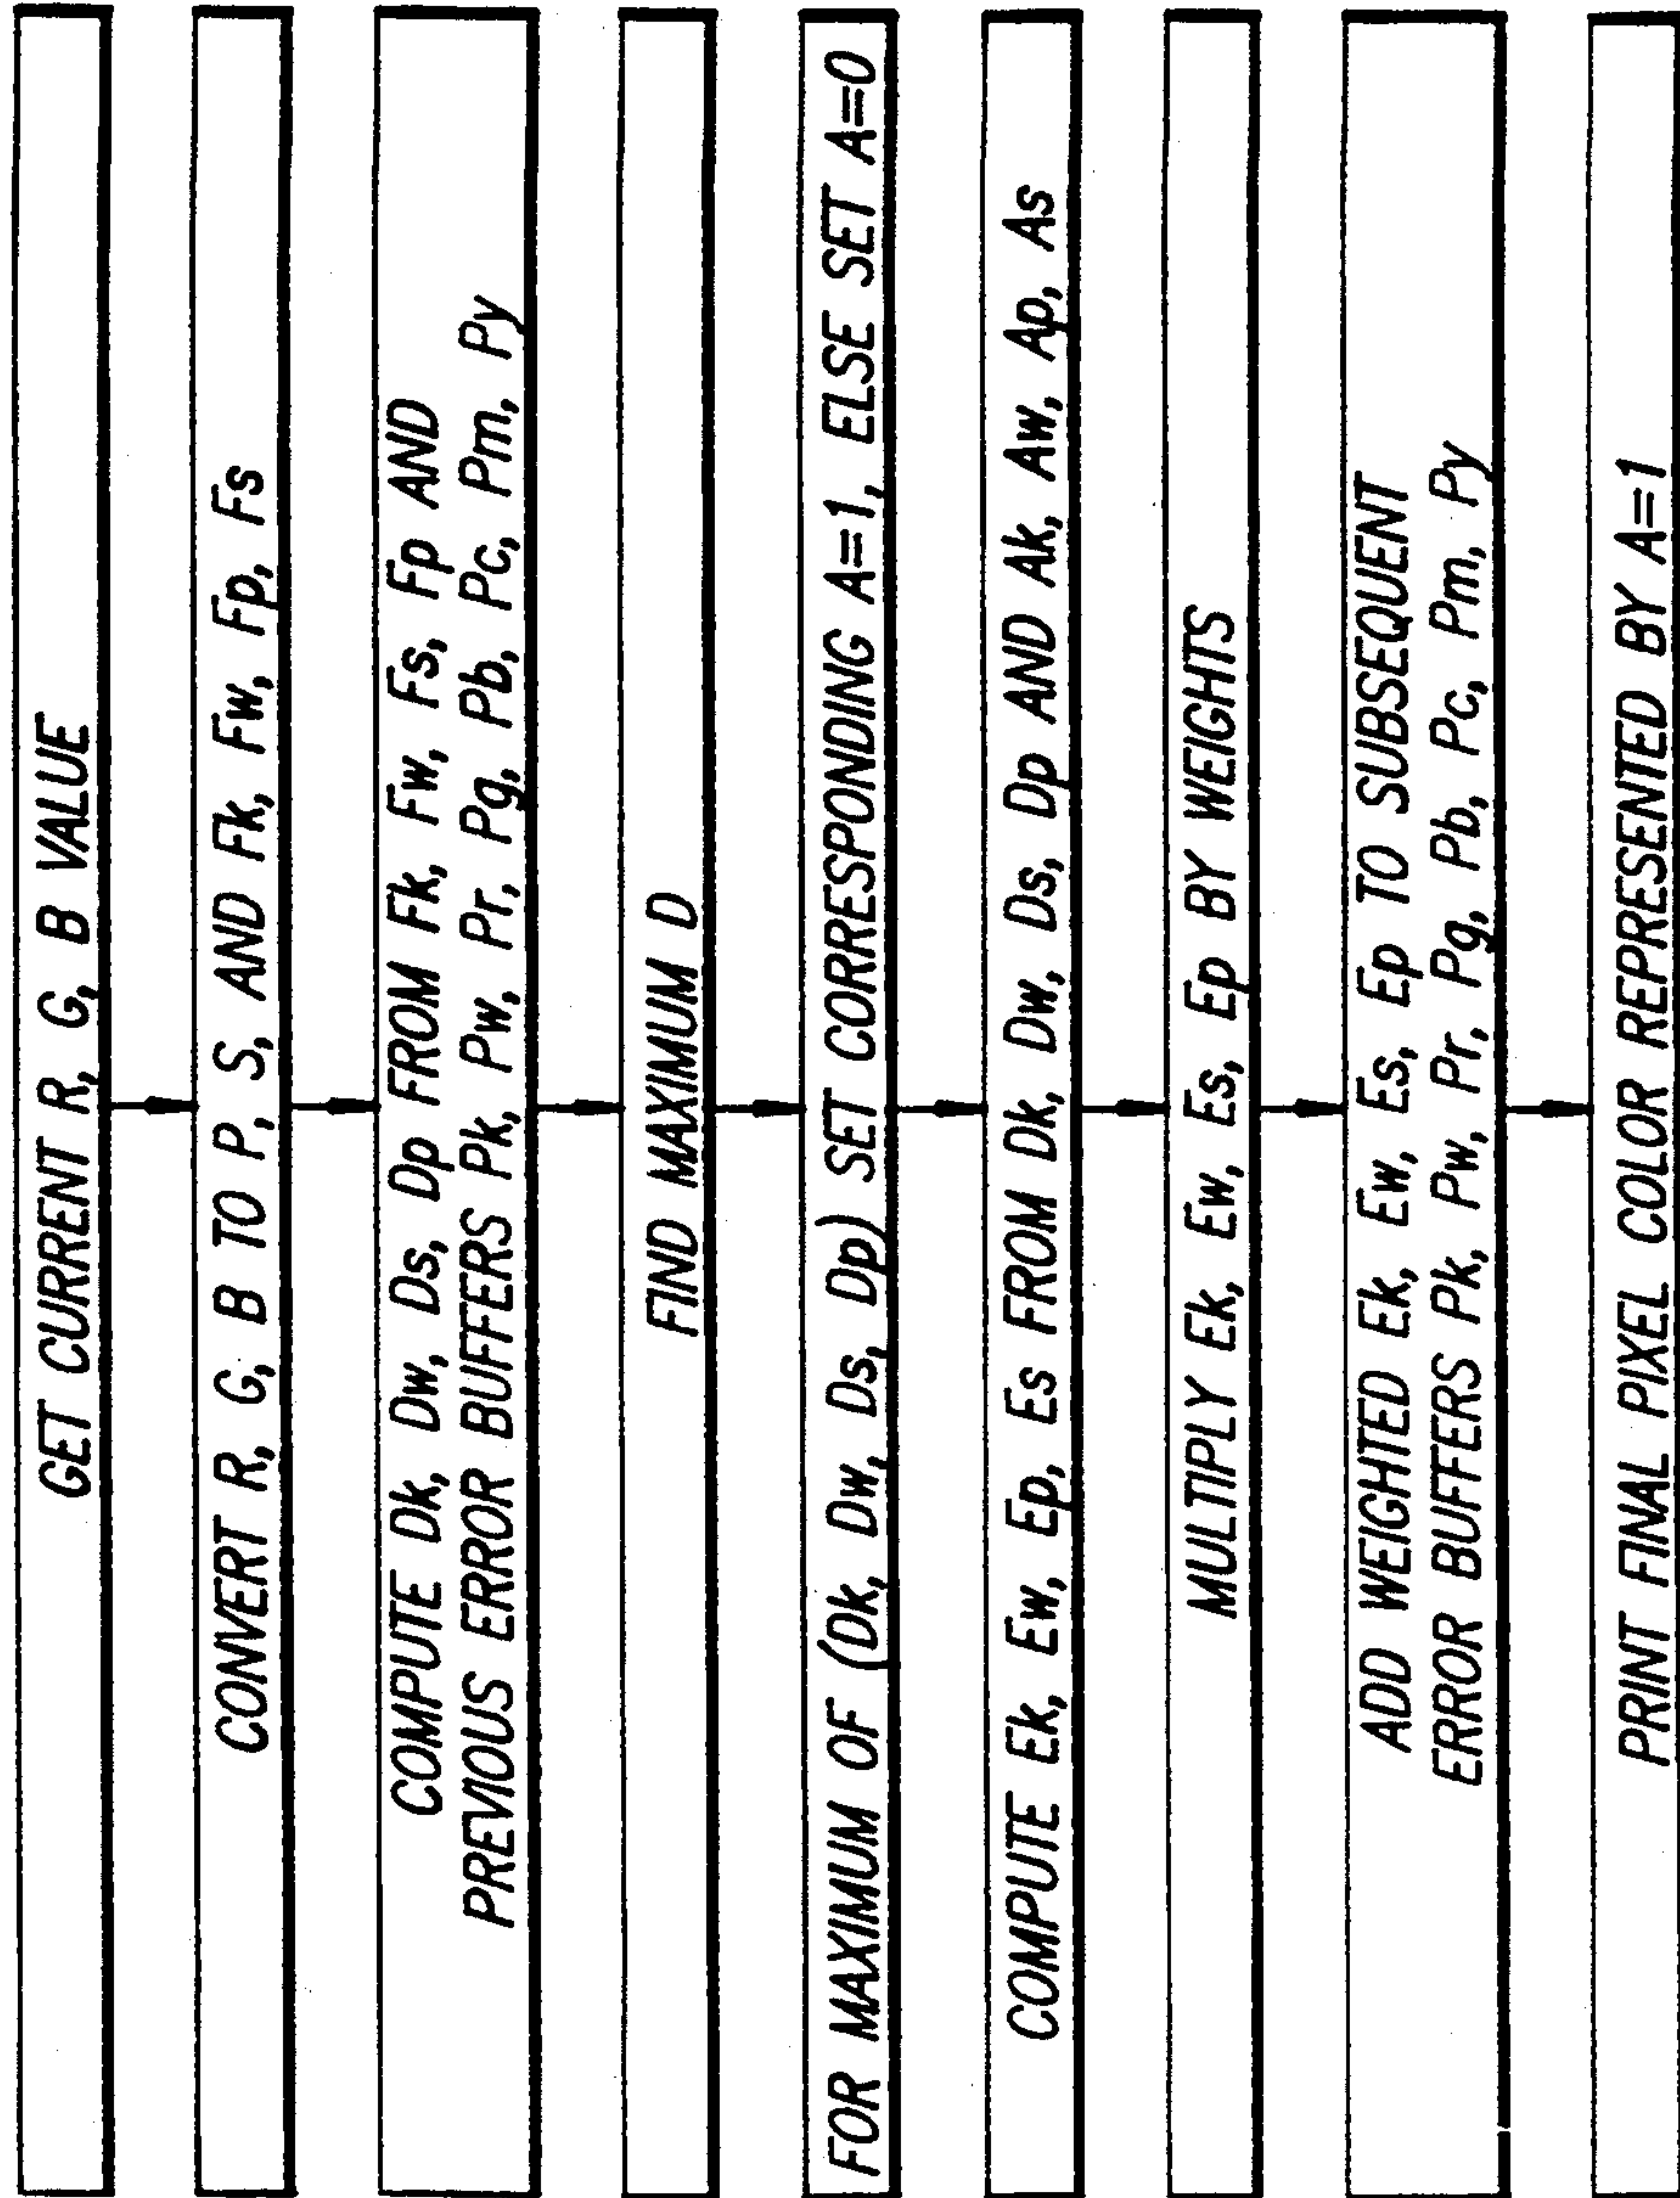 GET CURRENT R, G, B VALUE
CONVERT R, G, B TO P, S, AND Fk, Fw, Fp, Fs
COMPUTE Dk, Dw, Ds, Dp FROM Fk, Fw, Fs, Fp AND
PREVIOUS ERROR BUFFERS Pk, Pw, Pr, Pg, Pb, Pc, Pm, Py
FIND MAXIMUM D
FOR MAXIMUM OF (Dk, Dw, Ds, Dp) SET CORRESPONDING A=1, ELSE SET A=0
COMPUTE Ek, Ew, Ep, Es FROM Dk, Dw, Ds, Dp AND Ak, Aw, Ap, As
MULTIPLY Ek, Ew, Es, Ep BY WEIGHTS
ADD WEIGHTED Ek, Ew, Es, Ep TO SUBSEQUENT
ERROR BUFFERS Pk, Pw, Pr, Pg, Pb, Pc, Pm, Py
PRINT FINAL PIXEL COLOR REPRESENTED BY A=1